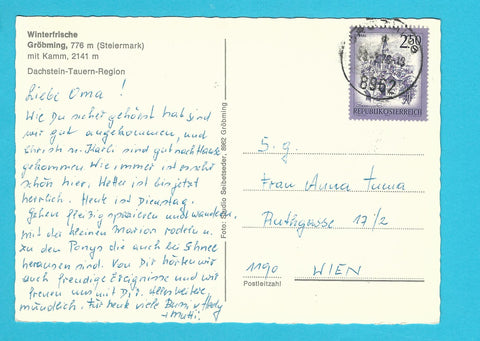 Winterfrische
Gröbming, 776 m (Steiermark)
mit Kamm, 2141 m
Dachstein-Tauern-Region
Liebe Oma!
Wie Du sicher gehört hast sind
wir gut angekommen, und
Christl u. Karli sind gut nach Hause
gekommen. Wie immer ist es sehr
schön hier. Wetter ist bis jetzt
herrlich. Heute ist Dienstag.
Gehen fleißig spazieren und wandern,
mit der kleinen Marion rodeln u.
zu den Ponys die auch bei Schnee
heraussen sind. Von Dir hörten wir
auch freudige Ereignisse und wir
freuen uns mit Dir. Alles weitere
mündlich. Für heute viele Bussi v.
+ Mutti.
Foto-Studio Seibetseder, 8962 Gröbming
2.50
REPUBLIK ÖSTERREICH
8962
S. g.
Frau Anna Tuma
Ruthgasse 17/2
1190 WIEN
Postleitzahl